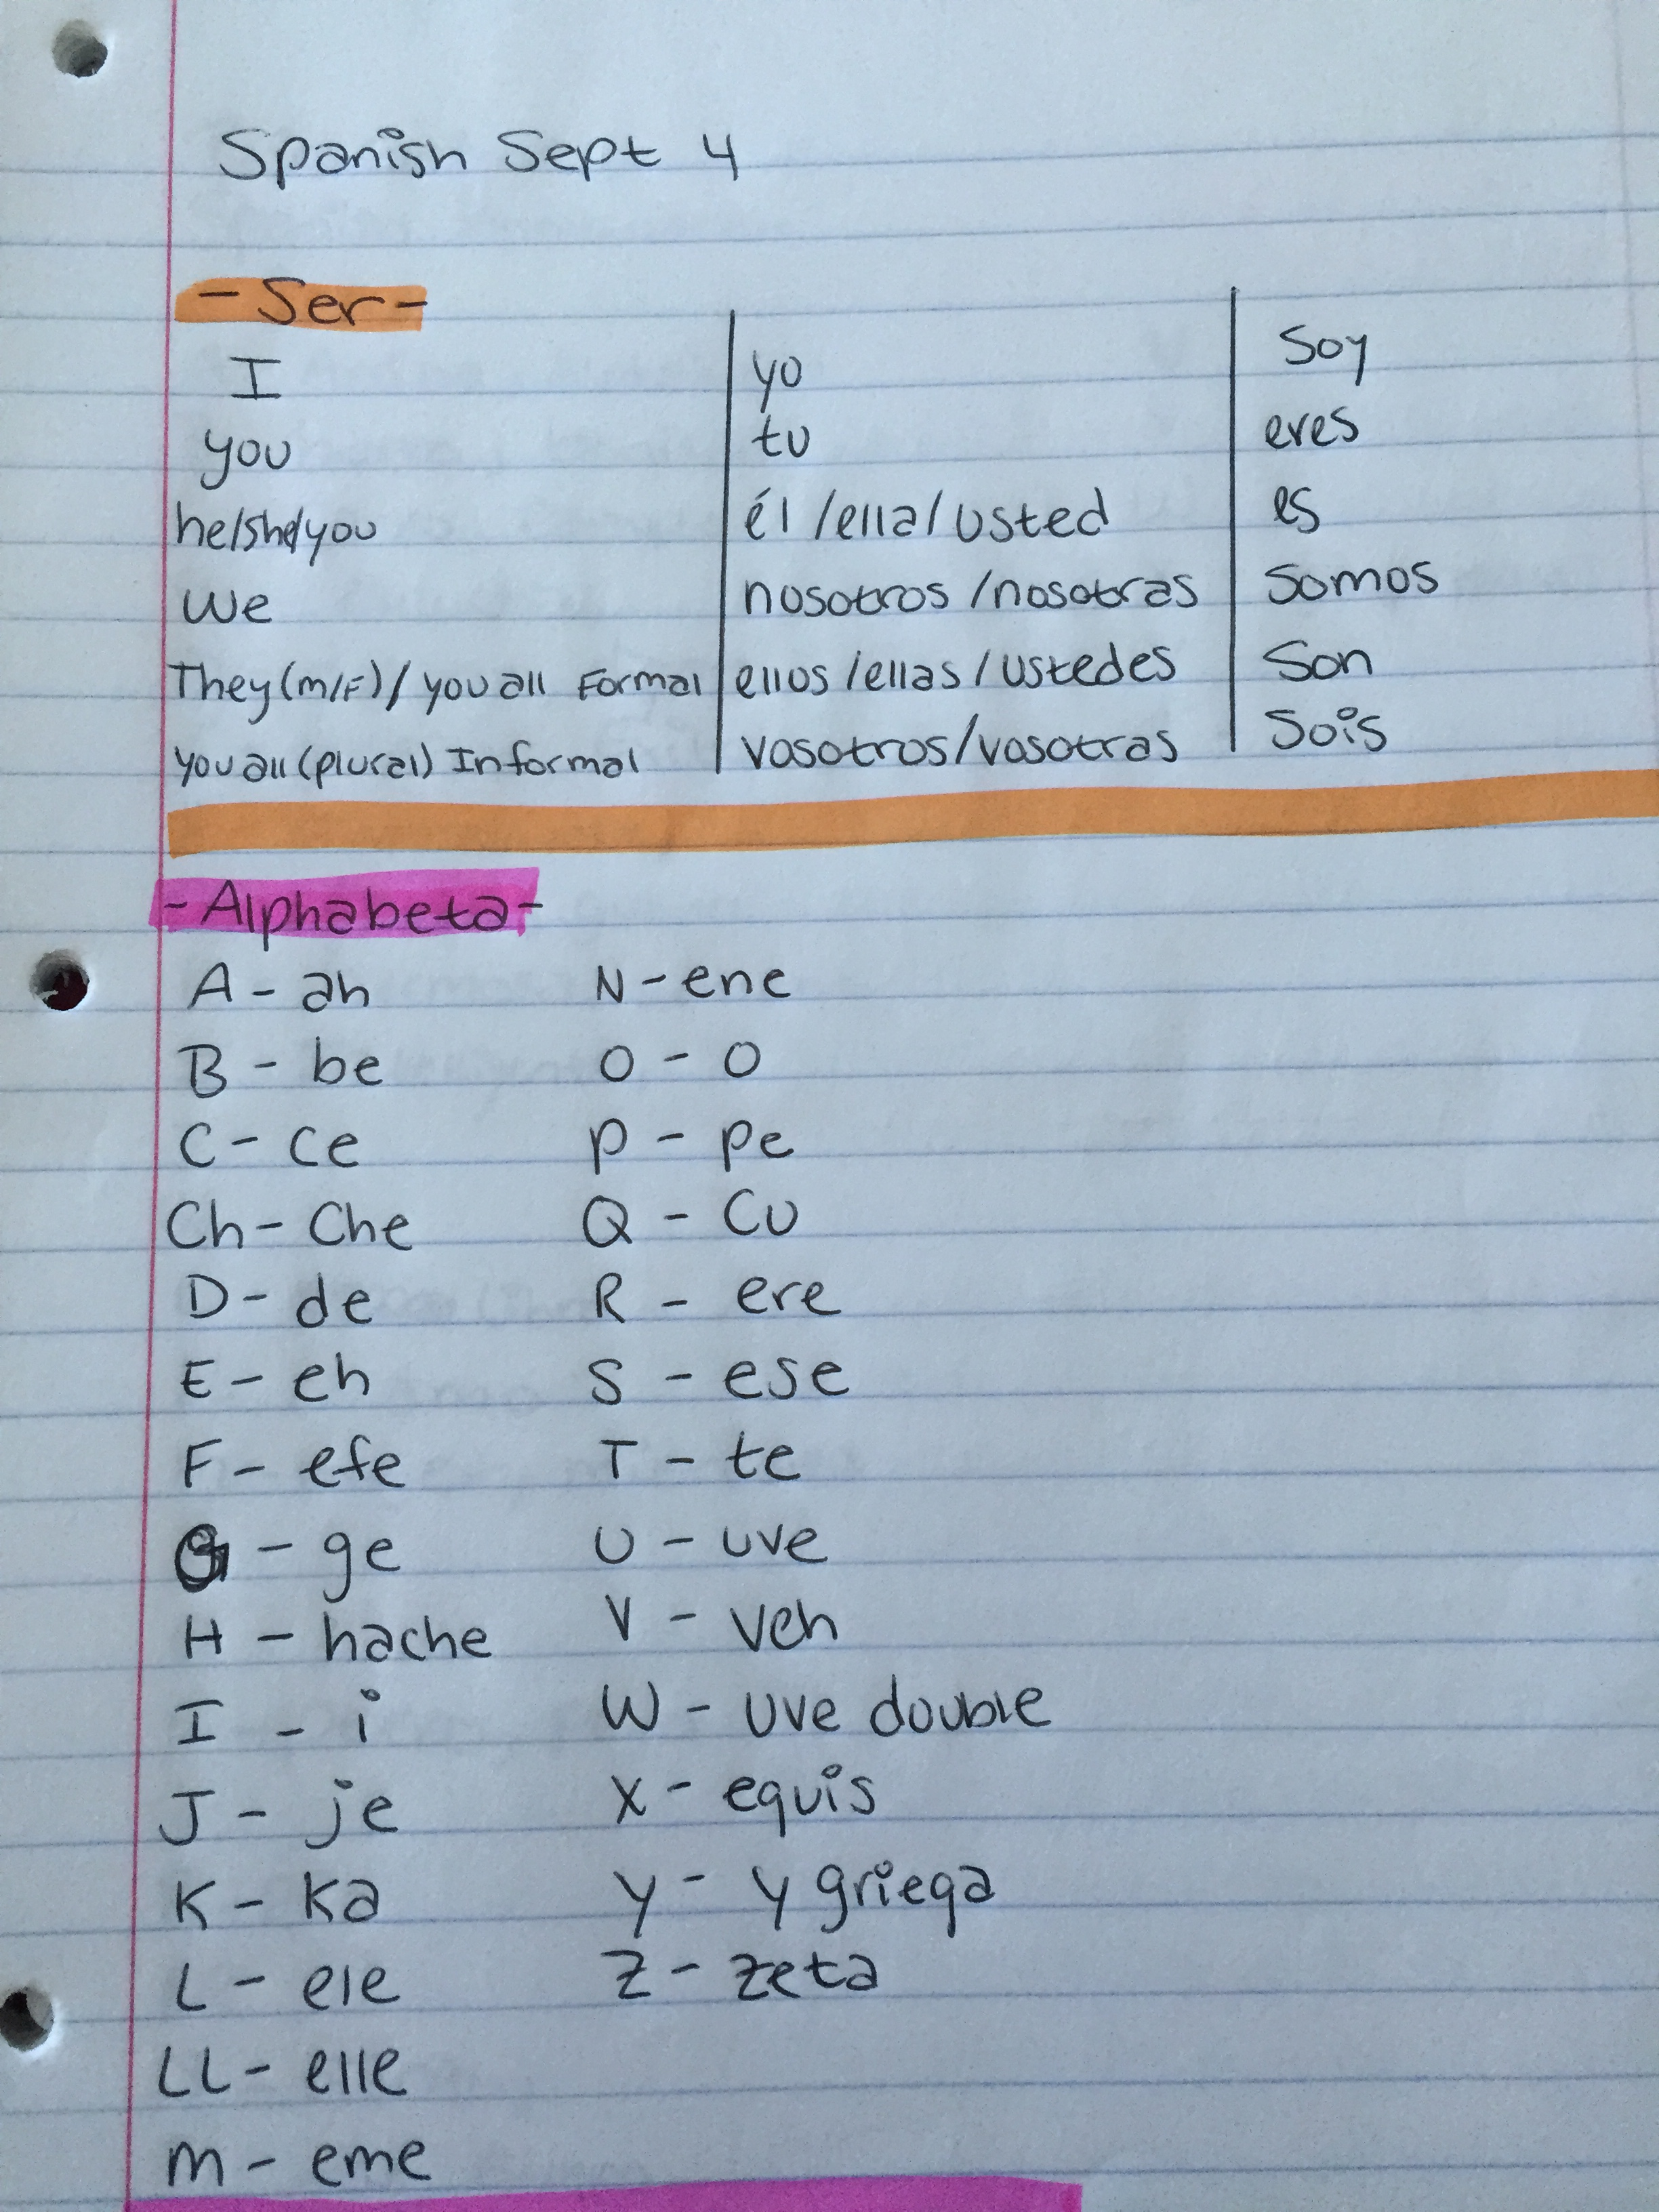 Spanish Sept 4
- Ser -
I yo Soy
you tu eres
he/she/you él /ella/ usted es
We nosotros /nosotras Somos
They (m/F) / you all Formal ellos /ellas / Ustedes Son
you all (plural) Informal vosotros/vosotras Sois
- Alphabeta -
A - ah
B - be
C - ce
Ch - Che
D - de
E - eh
F - efe
G - ge
H - hache
I - i
J - je
K - ka
L - ele
LL - elle
M - eme
N - ene
O - O
P - pe
Q - Cu
R - ere
S - ese
T - te
U - uve
V - veh
W - uve double
X - equis
Y - y griega
Z - zeta